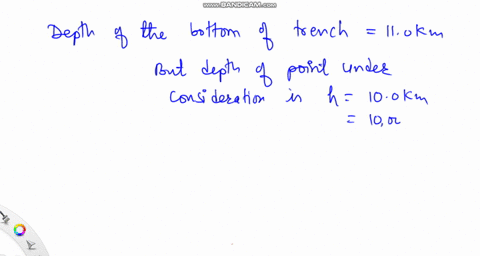 WWW.BANDICAM.COM
Depth of the bottom of trench = 11.0 km
But depth of point under
consideration is h = 10.0 km
= 10,00